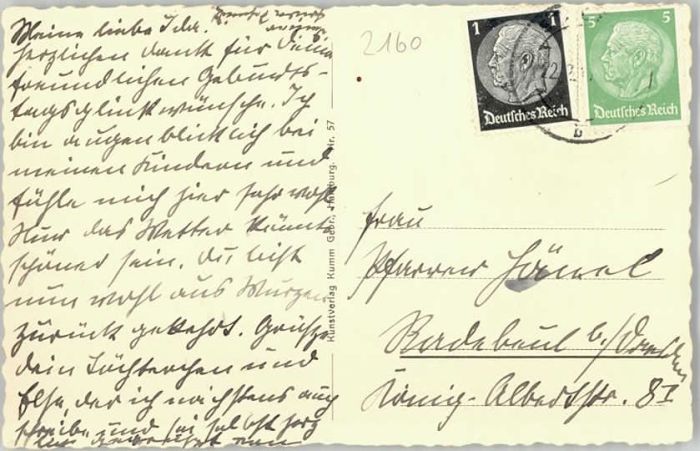 Meine liebe Ida.
herzlichen Dank für Deine
freundlichen Geburts-
tagsglückwünsche. Ich
bin augenblicklich bei
meinen Kindern und
fühle mich hier sehr wohl
Nur das Wetter könnte
schöner sein. Du bist
nun wohl aus Wurzen
zurück gekehrt. Grüße
dein Töchterchen und
Else, der ich nächstens auch
schreibe und sei selbst herz
2160
1 1
Deutsches Reich
5 5
Deutsches Reich
Kunstverlag Kumm Gebr., Hamburg, Nr. 57
Frau
Pfarrer
Radebeul b./Dresden
König-Albertstr. 8 I